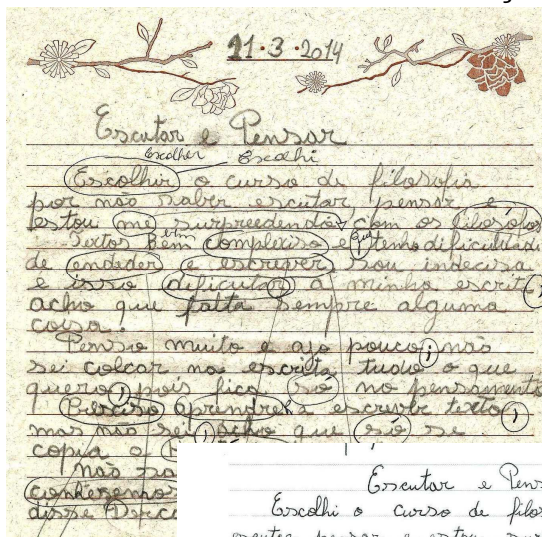 21.3.2014
Escutar e Pensar
Escolher Escolhi
Escolhir o curso de filosofia
por não saber escutar, pensar e
estou me surpreendendo com os filosofos
textos Bem complexiso e que temo dificuldade
de endeder e escrever, sou indecisa
e isso dificular a minha escrita,
acho que falta sempre alguma
coisa.
Penso muito e ajo pouco; não
sei colcar na escrita tudo o que
quero, pois fico só no pensamento
Preciso aprendre a escrever texto,
mas não sei, acho que so se
copia o
não
conhesemo
disse
Escutar e Pens
Escolhi o curso de filos
escutar, pensar e estou sur